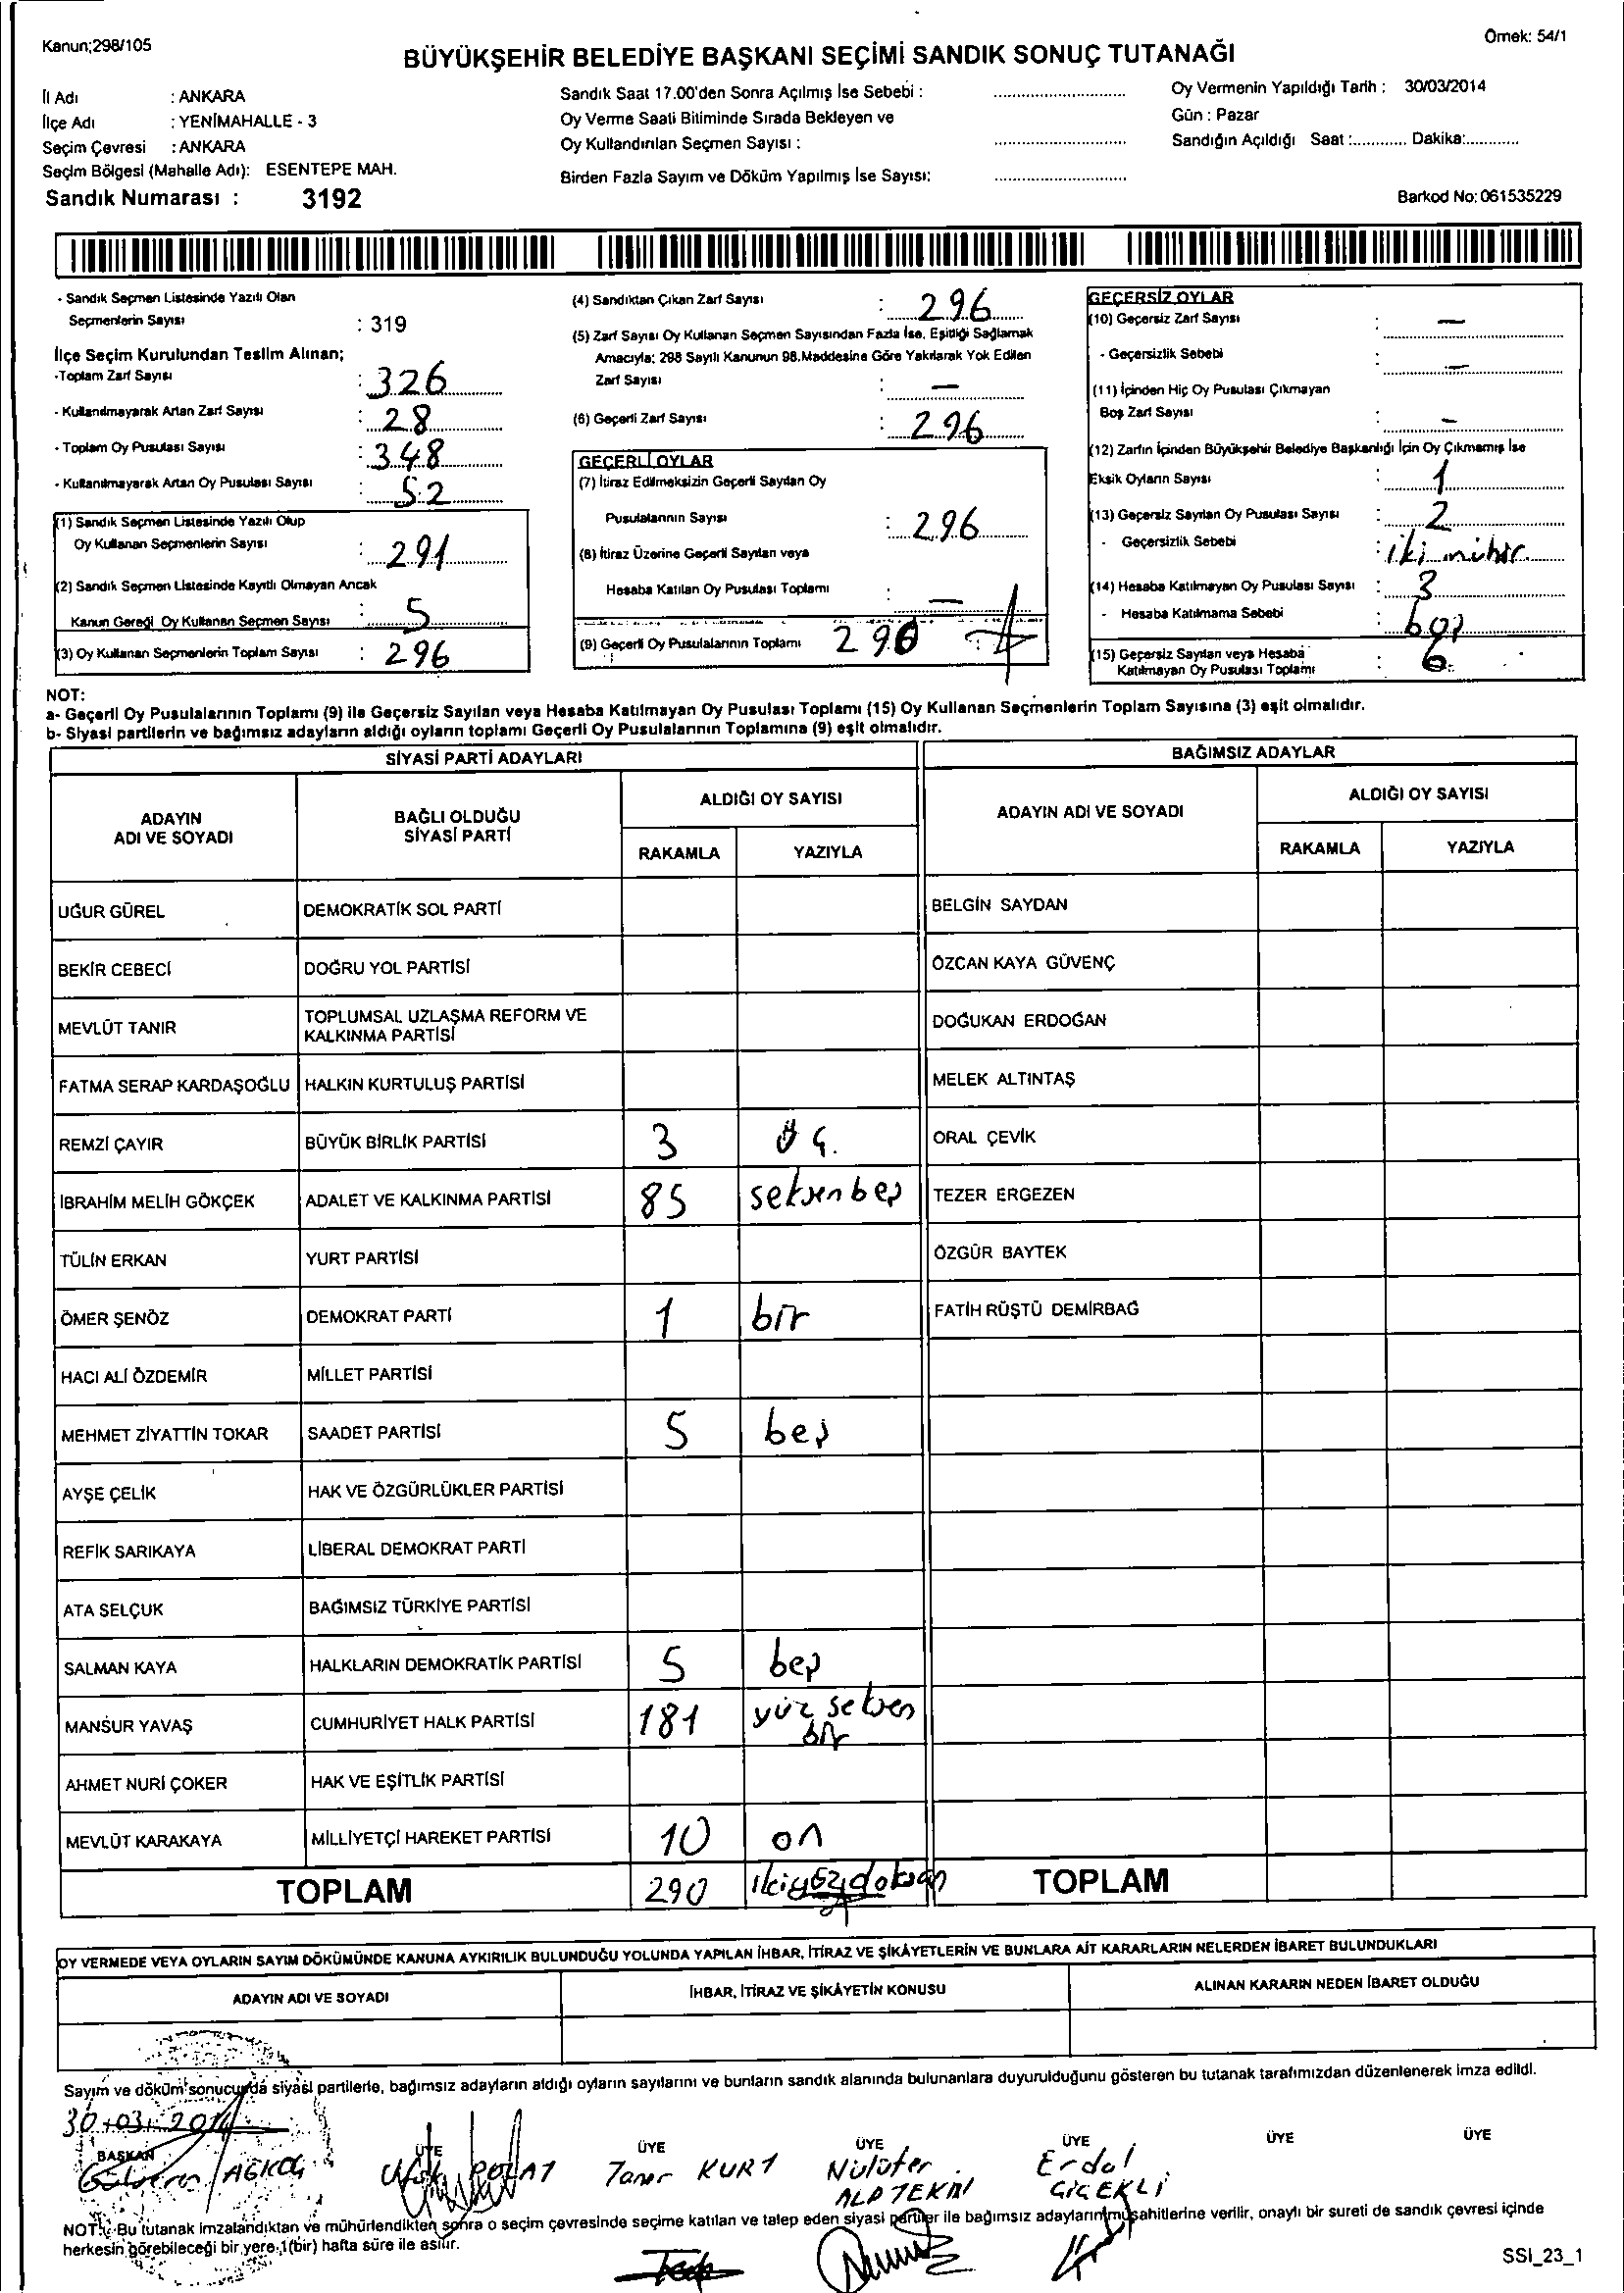 Kanun;298/105
Örnek: 54/1
BÜYÜKŞEHİR BELEDİYE BAŞKANI SEÇİMİ SANDIK SONUÇ TUTANAĞI
İl Adı : ANKARA
İlçe Adı : YENİMAHALLE - 3
Seçim Çevresi : ANKARA
Seçim Bölgesi (Mahalle Adı): ESENTEPE MAH.
Sandık Numarası : 3192
Sandık Saat 17.00'den Sonra Açılmış İse Sebebi :
Oy Verme Saati Bitiminde Sırada Bekleyen ve
Oy Kullandırılan Seçmen Sayısı :
Birden Fazla Sayım ve Döküm Yapılmış İse Sayısı:
Oy Vermenin Yapıldığı Tarih : 30/03/2014
Gün : Pazar
Sandığın Açıldığı Saat :............ Dakika:............
Barkod No: 061535229
- Sandık Seçmen Listesinde Yazılı Olan
Seçmenlerin Sayısı : 319
İlçe Seçim Kurulundan Teslim Alınan;
-Toplam Zarf Sayısı : 326
- Kullanılmayarak Artan Zarf Sayısı : 28
- Toplam Oy Pusulası Sayısı : 348
- Kullanılmayarak Artan Oy Pusulası Sayısı : 52
(1) Sandık Seçmen Listesinde Yazılı Olup
Oy Kullanan Seçmenlerin Sayısı : 291
(2) Sandık Seçmen Listesinde Kayıtlı Olmayan Ancak
Kanun Gereği Oy Kullanan Seçmen Sayısı : 5
(3) Oy Kullanan Seçmenlerin Toplam Sayısı : 296
(4) Sandıktan Çıkan Zarf Sayısı : 296
(5) Zarf Sayısı Oy Kullanan Seçmen Sayısından Fazla İse, Eşitliği Sağlamak
Amacıyla; 298 Sayılı Kanunun 98.Maddesine Göre Yakılarak Yok Edilen
Zarf Sayısı : —
(6) Geçerli Zarf Sayısı : 296
GEÇERLİ OYLAR
(7) İtiraz Edilmeksizin Geçerli Sayılan Oy
Pusulalarının Sayısı : 296
(8) İtiraz Üzerine Geçerli Sayılan veya
Hesaba Katılan Oy Pusulası Toplamı : —
(9) Geçerli Oy Pusulalarının Toplamı 290
GEÇERSİZ OYLAR
(10) Geçersiz Zarf Sayısı : —
- Geçersizlik Sebebi : —
(11) İçinden Hiç Oy Pusulası Çıkmayan
Boş Zarf Sayısı : —
(12) Zarfın İçinden Büyükşehir Belediye Başkanlığı İçin Oy Çıkmamış İse
Eksik Oyların Sayısı : 1
(13) Geçersiz Sayılan Oy Pusulası Sayısı : 2
- Geçersizlik Sebebi : iki mühür
(14) Hesaba Katılmayan Oy Pusulası Sayısı : 3
- Hesaba Katılmama Sebebi : boş
(15) Geçersiz Sayılan veya Hesaba
Katılmayan Oy Pusulası Toplamı : 6
NOT:
a- Geçerli Oy Pusulalarının Toplamı (9) ile Geçersiz Sayılan veya Hesaba Katılmayan Oy Pusulası Toplamı (15) Oy Kullanan Seçmenlerin Toplam Sayısına (3) eşit olmalıdır.
b- Siyasi partilerin ve bağımsız adayların aldığı oyların toplamı Geçerli Oy Pusulalarının Toplamına (9) eşit olmalıdır.
SİYASİ PARTİ ADAYLARI
BAĞIMSIZ ADAYLAR
ADAYIN
ADI VE SOYADI
BAĞLI OLDUĞU
SİYASİ PARTİ
ALDIĞI OY SAYISI
RAKAMLA YAZIYLA
ADAYIN ADI VE SOYADI
ALDIĞI OY SAYISI
RAKAMLA YAZIYLA
UĞUR GÜREL DEMOKRATİK SOL PARTİ BELGİN SAYDAN
BEKİR CEBECİ DOĞRU YOL PARTİSİ ÖZCAN KAYA GÜVENÇ
MEVLÜT TANIR TOPLUMSAL UZLAŞMA REFORM VE
KALKINMA PARTİSİ DOĞUKAN ERDOĞAN
FATMA SERAP KARDAŞOĞLU HALKIN KURTULUŞ PARTİSİ MELEK ALTINTAŞ
REMZİ ÇAYIR BÜYÜK BİRLİK PARTİSİ 3 üç. ORAL ÇEVİK
İBRAHİM MELİH GÖKÇEK ADALET VE KALKINMA PARTİSİ 85 seksenbeş TEZER ERGEZEN
TÜLİN ERKAN YURT PARTİSİ ÖZGÜR BAYTEK
ÖMER ŞENÖZ DEMOKRAT PARTİ 1 bir FATİH RÜŞTÜ DEMİRBAĞ
HACI ALİ ÖZDEMİR MİLLET PARTİSİ
MEHMET ZİYATTİN TOKAR SAADET PARTİSİ 5 beş
AYŞE ÇELİK HAK VE ÖZGÜRLÜKLER PARTİSİ
REFİK SARIKAYA LİBERAL DEMOKRAT PARTİ
ATA SELÇUK BAĞIMSIZ TÜRKİYE PARTİSİ
SALMAN KAYA HALKLARIN DEMOKRATİK PARTİSİ 5 beş
MANSUR YAVAŞ CUMHURİYET HALK PARTİSİ 181 yüz seksen
bir
AHMET NURİ ÇOKER HAK VE EŞİTLİK PARTİSİ
MEVLÜT KARAKAYA MİLLİYETÇİ HAREKET PARTİSİ 10 on
TOPLAM 290 ikiyüzdoksan TOPLAM
OY VERMEDE VEYA OYLARIN SAYIM DÖKÜMÜNDE KANUNA AYKIRILIK BULUNDUĞU YOLUNDA YAPILAN İHBAR, İTİRAZ VE ŞİKÂYETLERİN VE BUNLARA AİT KARARLARIN NELERDEN İBARET BULUNDUKLARI
ADAYIN ADI VE SOYADI İHBAR, İTİRAZ VE ŞİKÂYETİN KONUSU ALINAN KARARIN NEDEN İBARET OLDUĞU
Sayım ve döküm sonucunda siyasi partilerle, bağımsız adayların aldığı oyların sayılarını ve bunların sandık alanında bulunanlara duyurulduğunu gösteren bu tutanak tarafımızdan düzenlenerek imza edildi.
30.03.2014
BAŞKAN ÜYE ÜYE ÜYE ÜYE ÜYE ÜYE
Ufuk POLAT Taner KURT Nilüfer ALPTEKİN Erdal ÇİÇEKLİ
NOT: Bu tutanak imzalandıktan ve mühürlendikten sonra o seçim çevresinde seçime katılan ve talep eden siyasi partiler ile bağımsız adayların müşahitlerine verilir, onaylı bir sureti de sandık çevresi içinde
herkesin görebileceği bir yere 1(bir) hafta süre ile asılır.
SSI_23_1